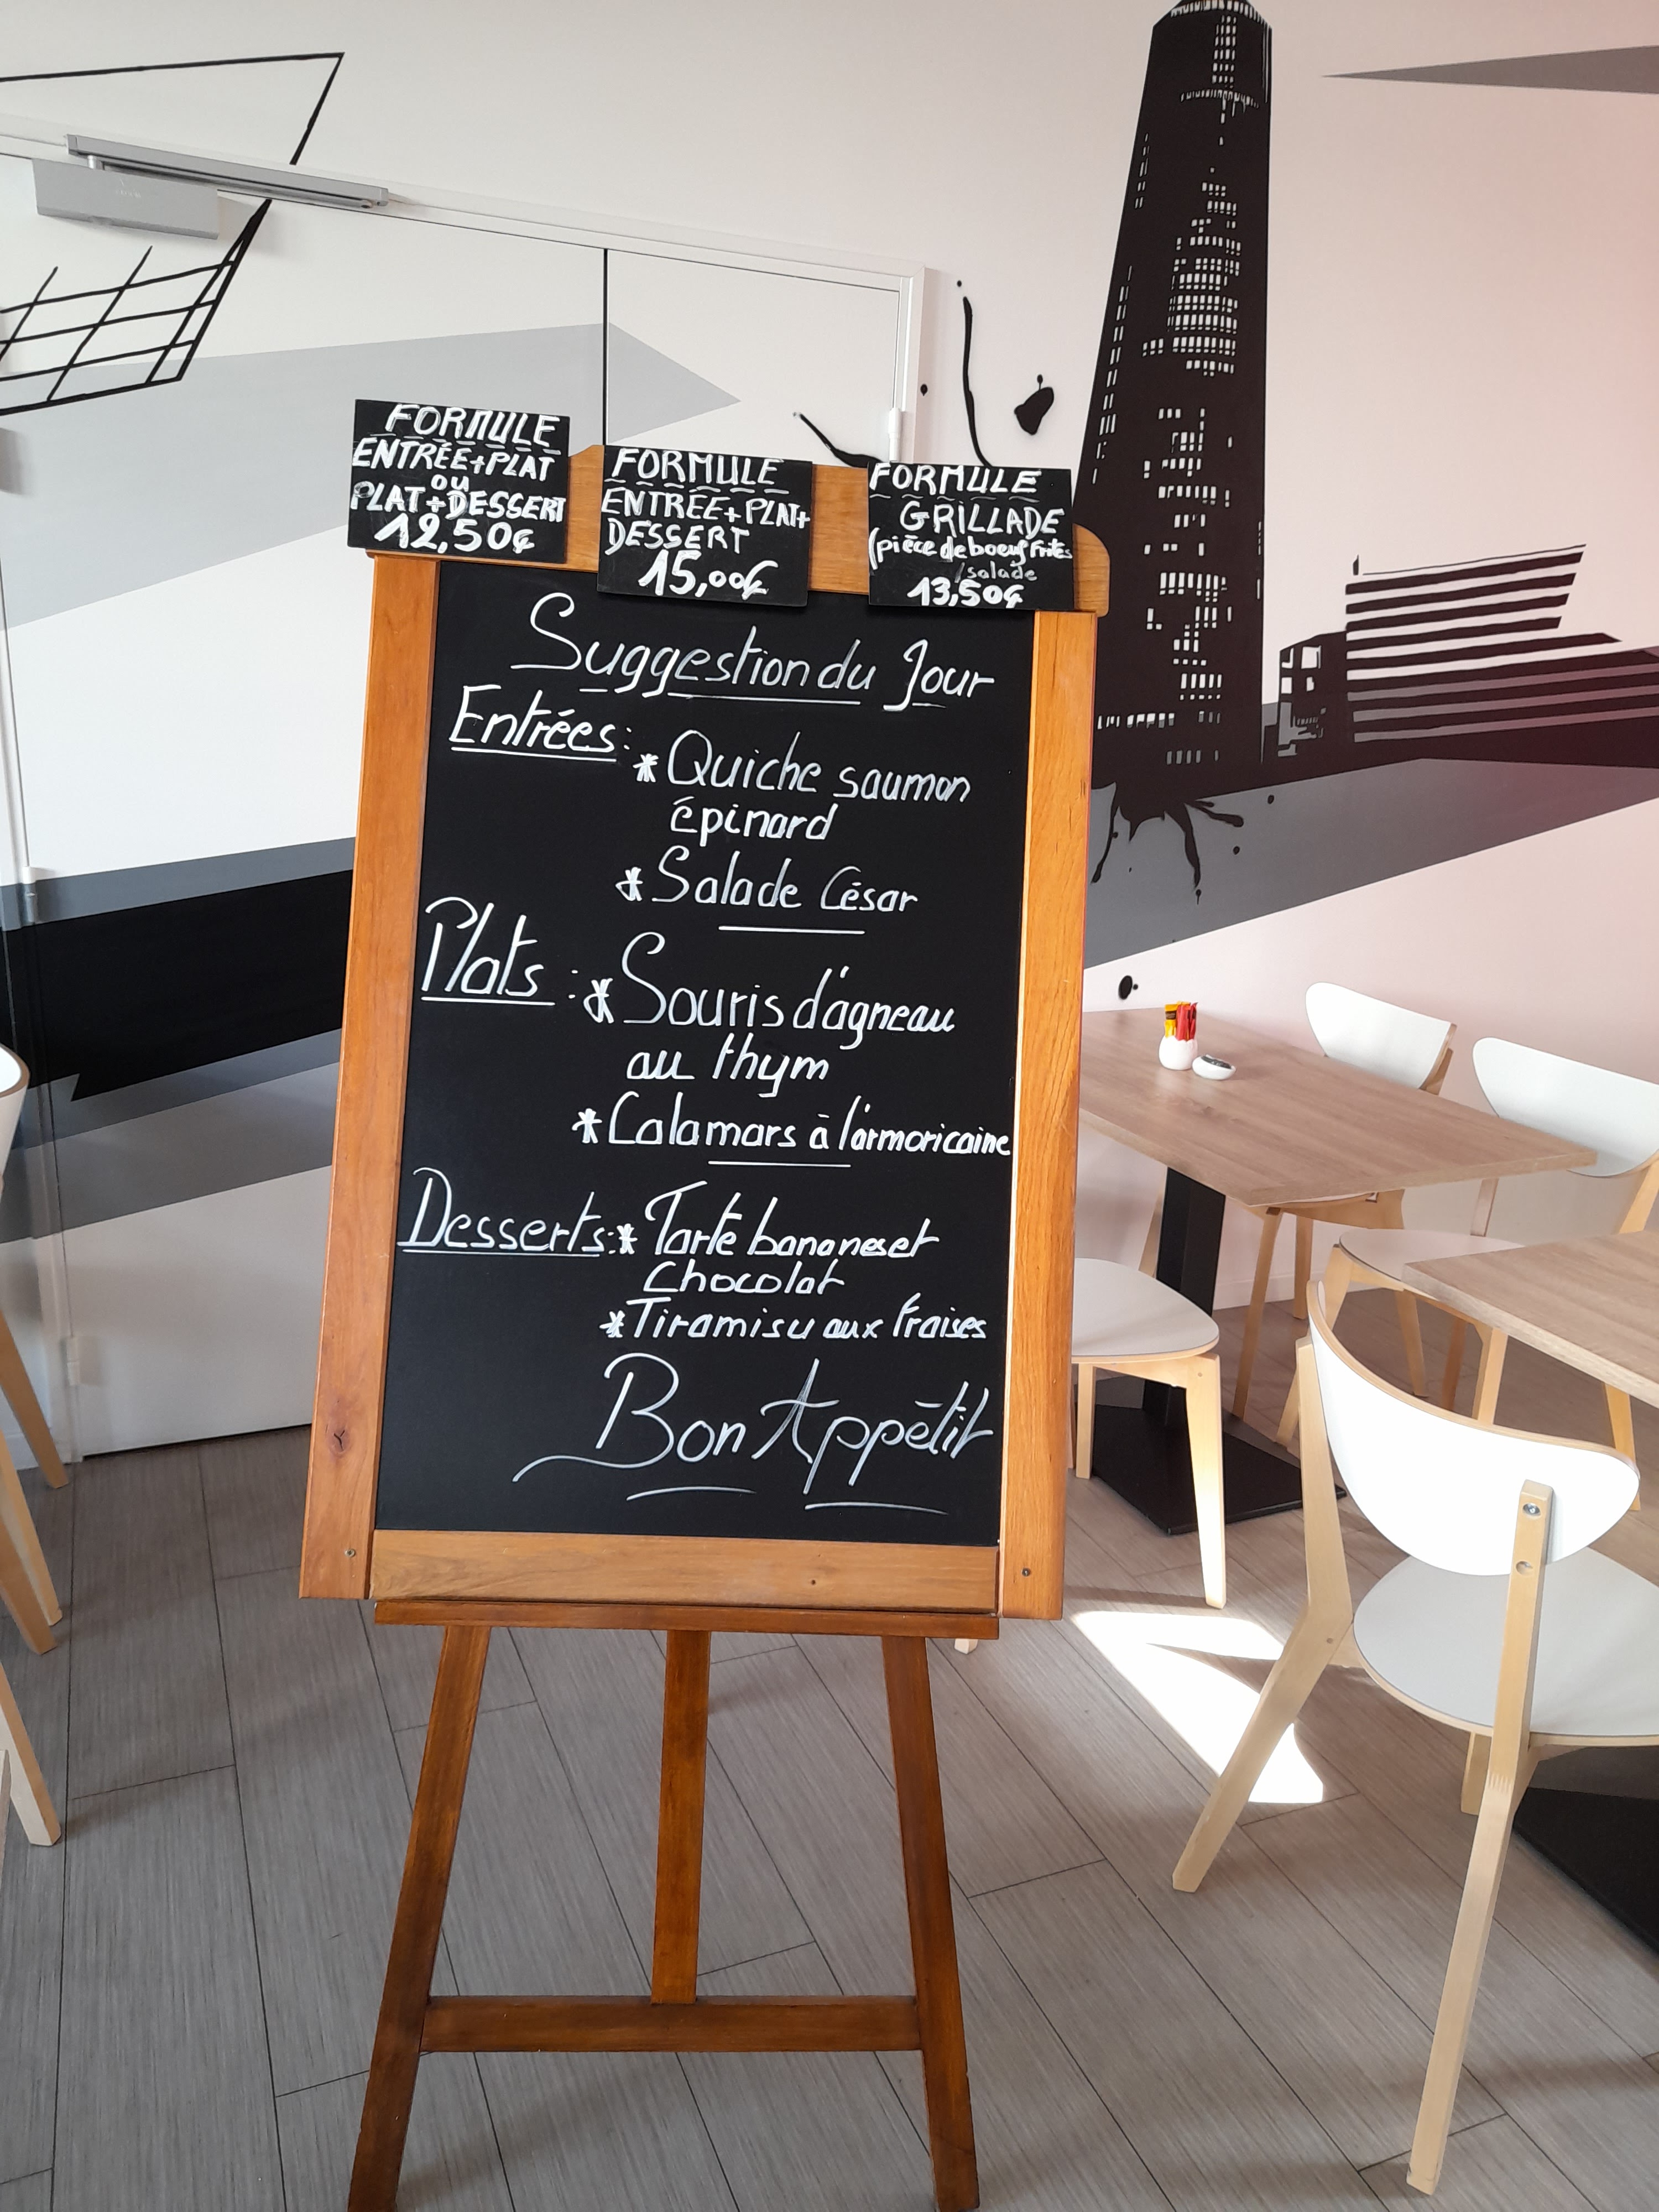 FORMULE
ENTRÉE+PLAT
OU
PLAT+DESSERT
12,50€
FORMULE
ENTRÉE+PLAT+
DESSERT
15,00€
FORMULE
GRILLADE
(pièce de boeuf Frites
/salade
13,50€
Suggestion du Jour
Entrées:
*Quiche saumon
épinard
*Salade César
Plats:
*Souris d'agneau
au thym
*Calamars à l'armoricaine
Desserts:*Tarte bananes et
Chocolat
*Tiramisu aux fraises
Bon Appétit